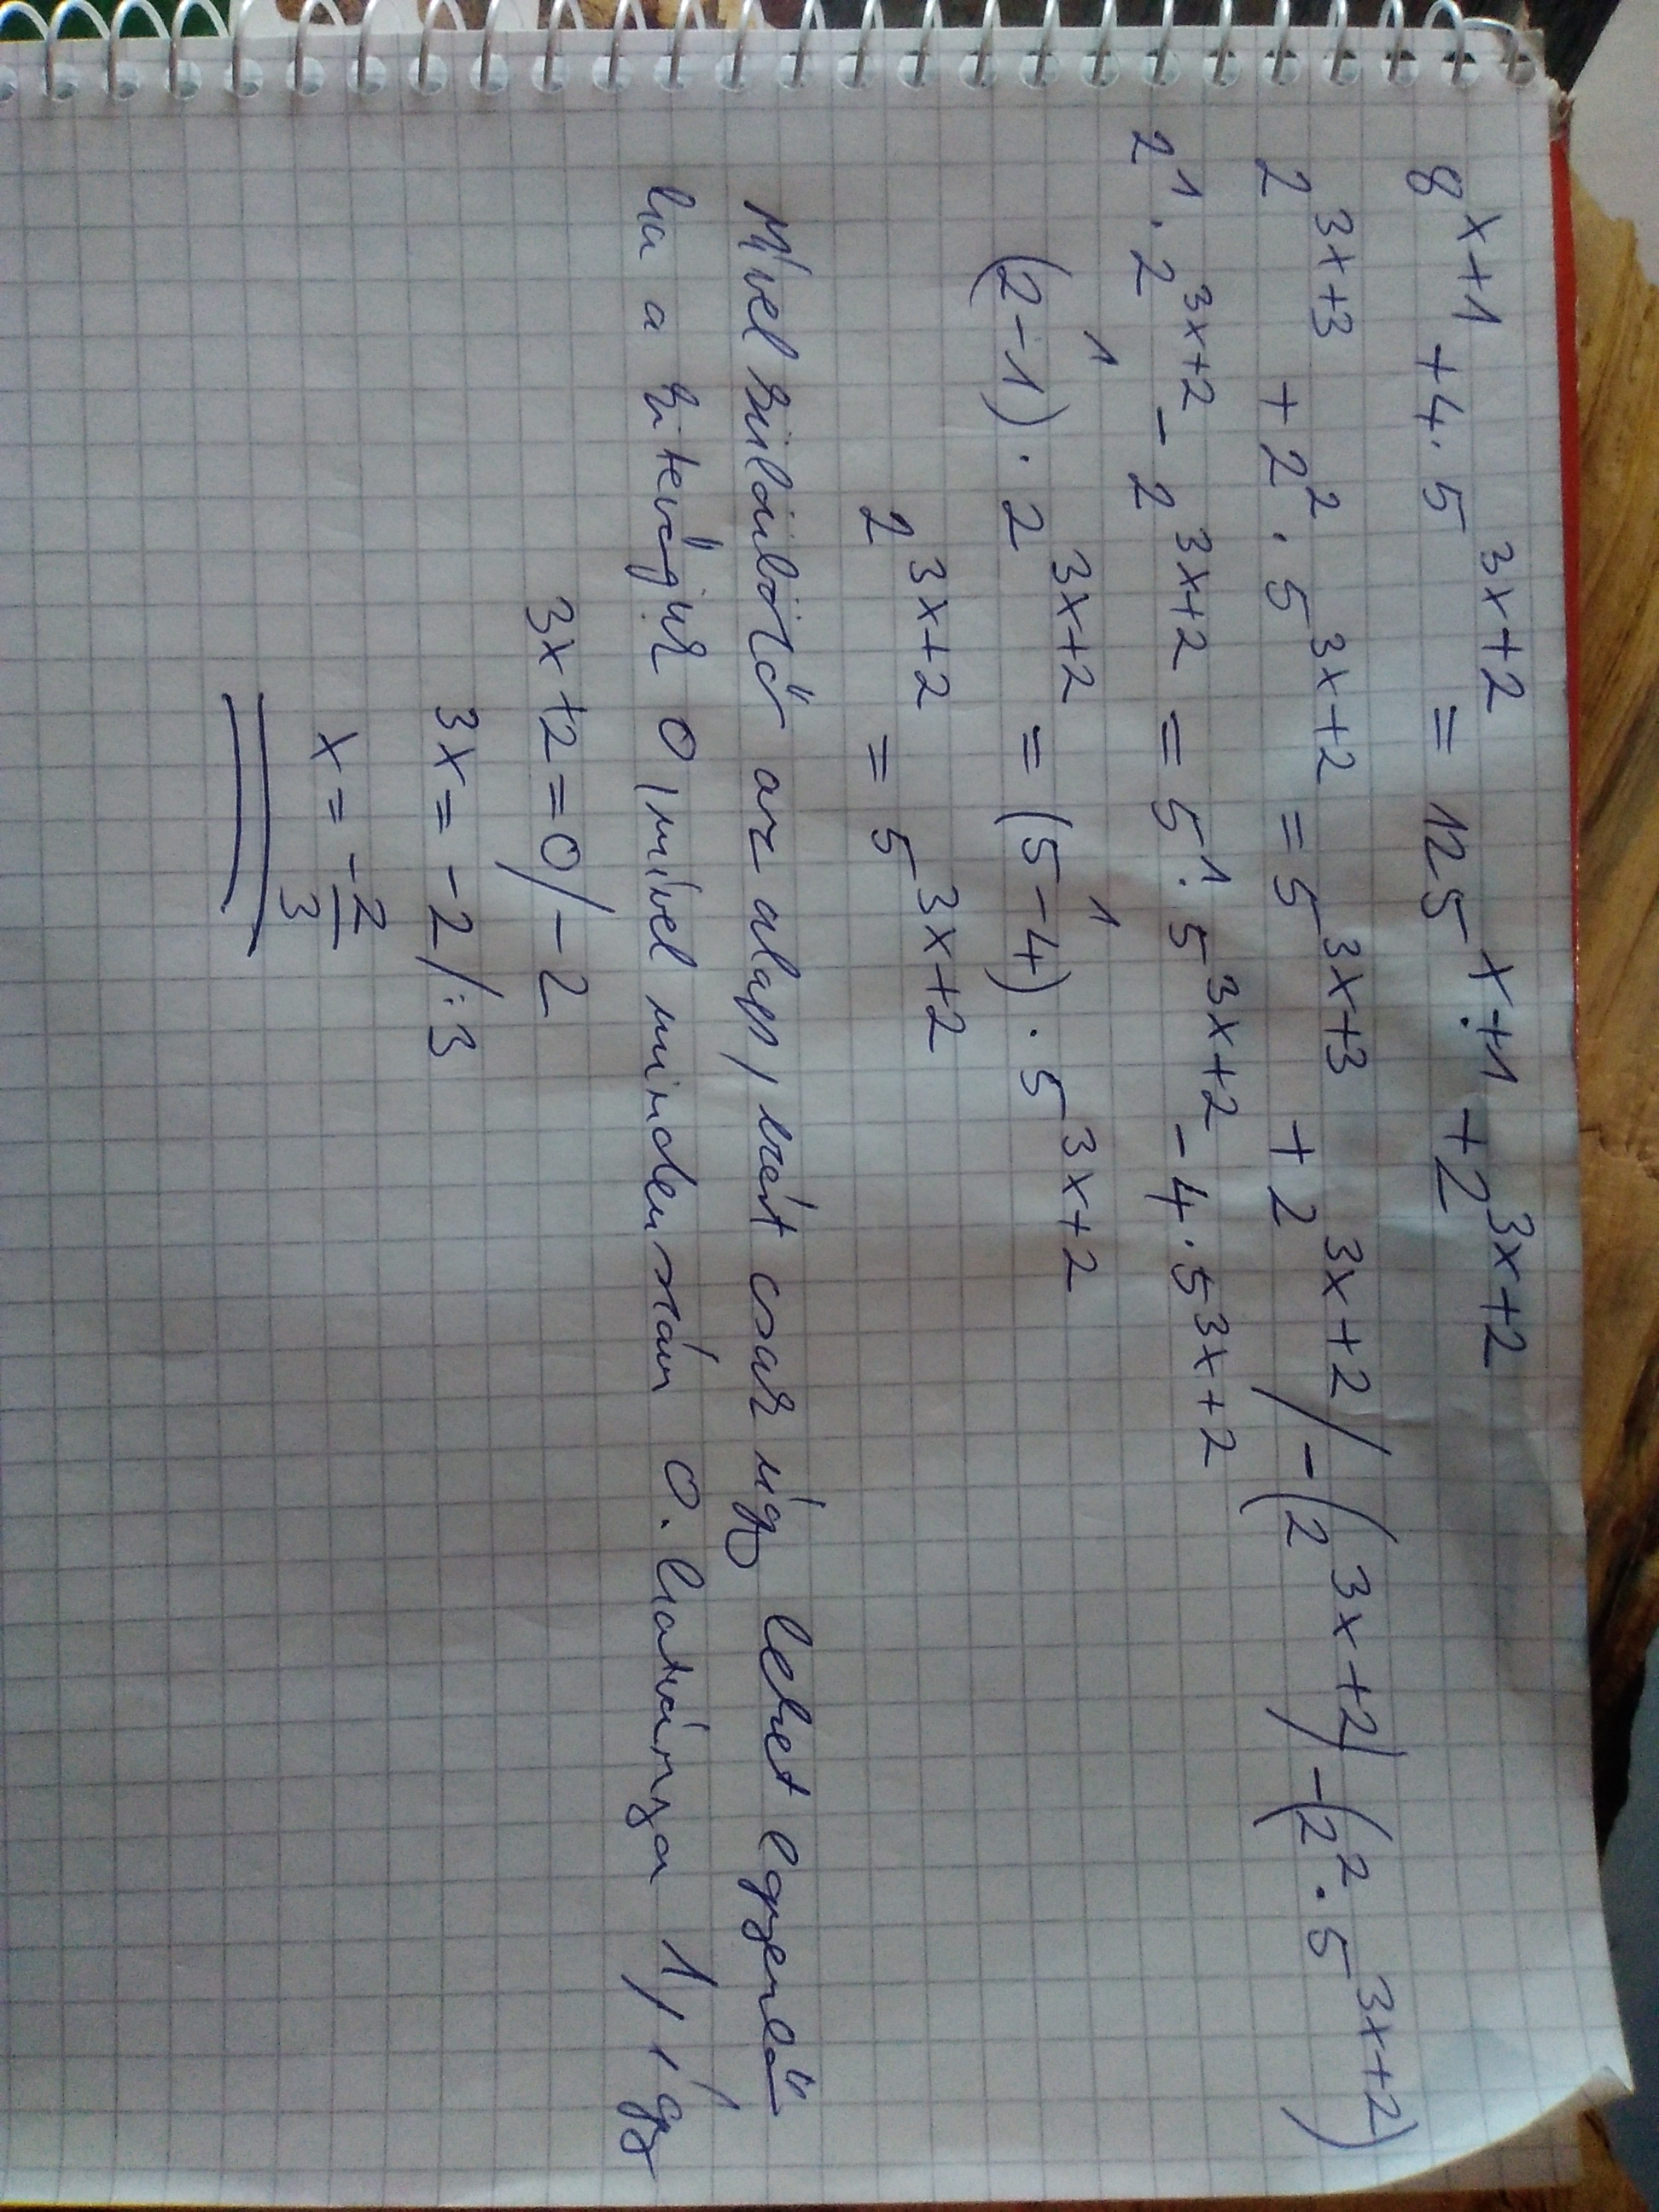 8^(x+1) + 4 · 5^(3x+2) = 125^(x+1) + 2^(3x+2)
2^(3x+3) + 2² · 5^(3x+2) = 5^(3x+3) + 2^(3x+2) / -(2^(3x+2)) -(2² · 5^(3x+2))
2¹ · 2^(3x+2) - 2^(3x+2) = 5¹ · 5^(3x+2) - 4 · 5^(3x+2)
1 1
(2-1) · 2^(3x+2) = (5-4) · 5^(3x+2)
2^(3x+2) = 5^(3x+2)
Mivel különböző az alap, ezért csak úgy lehet egyenlő
ha a kitevőjük 0, mivel mindenszám 0. hatványa 1, így
3x+2=0 /-2
3x = -2 /:3
x = -2/3